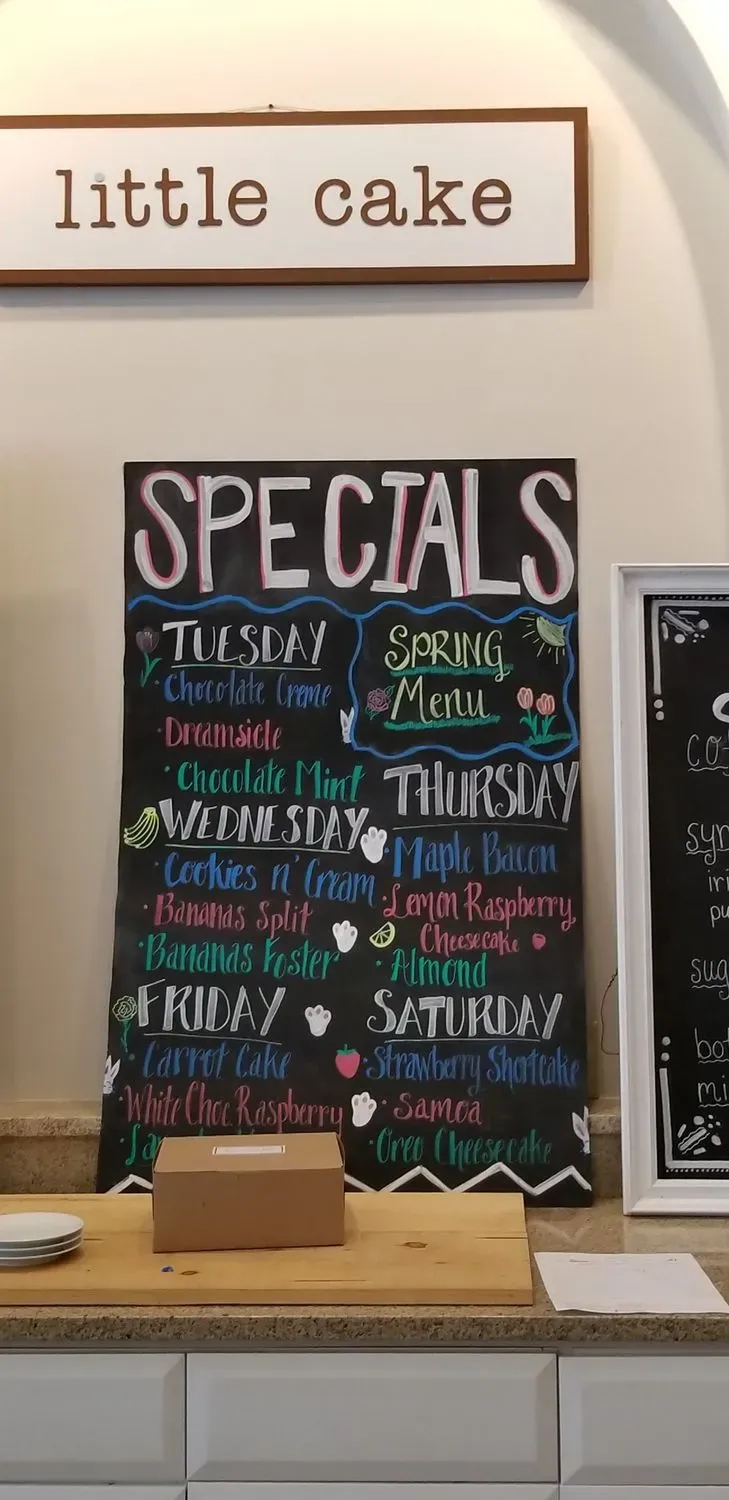 little cake
SPECIALS
TUESDAY
· Chocolate Creme
· Dreamsicle
· Chocolate Mint
SPRING
Menu
WEDNESDAY
· Cookies n' Cream
· Bananas Split
· Bananas Foster
THURSDAY
· Maple Bacon
· Lemon Raspberry
Cheesecake
· Almond
FRIDAY
· Carrot Cake
· White Choc. Raspberry
SATURDAY
· Strawberry Shortcake
· Samoa
· Oreo Cheesecake